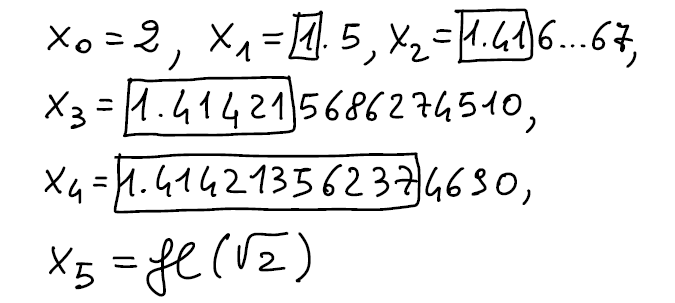 x₀ = 2, x₁ = 1.5, x₂ = 1.416...67,
x₃ = 1.414215686274510,
x₄ = 1.414213562374690,
x₅ = fl(√2)